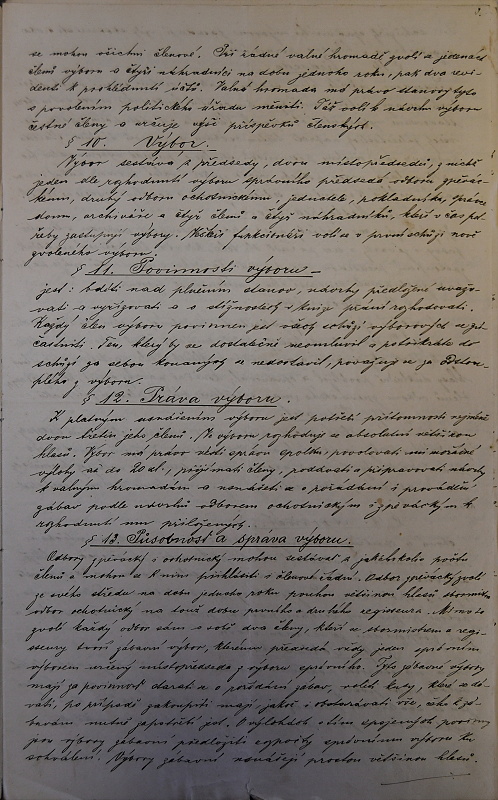 3.
se mohou všichni členové. Při řádné valné hromadě zvolí a jedenáct
členů výboru a čtyři náhradníci na dobu jednoho roku, pak dva revi-
denti k prohlédnutí účtů. Valná hromada má právo stanovy tyto
s povolením politického úřadu měniti. Též volí k návrhu výboru
čestné členy a určuje výši příspěvků členských.
§ 10. Výbor.
Výbor sestává z předsedy, dvou místopředsedů, z nichž
jeden dle rozhodnutí výboru správního předsedá odboru zpěvác-
kému, druhý odboru ochotnickému, jednatele, pokladníka, správce
domu, archiváře a čtyř členů a čtyř náhradníků, kteří v čas po-
třeby zastupují výbory. Někteří funkcionáři volí se v první schůzi nově
zvoleného výboru.
§ 11. Povinnosti výboru
jest: bdíti nad plněním stanov, návrhy předložené uvažo-
vati a vyřizovati a o stížnostech v knize přání rozhodovati.
Každý člen výboru povinnen jest všech schůzí výborových se zú-
častniti. Ten, který by se dostatečně neomluvil a potřikráte do
schůzí za sebou konaných se nedostavil, považuje se za odstou-
plého z výboru.
§ 12. Práva výboru.
K platným usnášením výboru jest potřebí přítomnosti nejméně
dvou třetin jeho členů. Ve výboru rozhoduje se absolutní většinou
hlasů. Výbor má právo vésti správu spolku, povolovati mimořádné
výlohy až do 20 zl., přijímati členy, podávati a připravovati návrhy
k valným hromadám a usnášeti se o pořádání i provádění
zábav podle návrhů odborem ochotnickým i zpěváckým k
rozhodnutí mu přiložených.
§ 13. Působnost a správa výboru.
Odbory zpěvácký i ochotnický mohou sestávat z jakéhokoliv počtu
členů a mohou se k nim přihlásiti i členové řádní. Odbor zpěvácký zvolí
ze svého středu na dobu jednoho roku pouhou většinou hlasů sbormistra
odbor ochotnický na touž dobu prvního a druhého regisseura. Mimo to
zvolí každý odbor sám o sobě dva členy, kteří se sbormistrem a regi-
sseury tvoří zábavní výbor, kterému předsedá vždy jeden správním
výborem určený místopředseda z výboru správního. Tyto zábavné výbory
mají za povinnost starati se o pořádání zábav, voliti kusy, které se dá-
vati, po případě zakoupiti mají, jakož i obstarávati vše, čeho k zá-
bavám nutně zapotřebí jest. O výlohách s tím spojených povinny
jsou výbory zábavní předložiti rozpočty správnímu výboru ke
schválení. Výbory zábavní usnášejí prostou většinou hlasů.